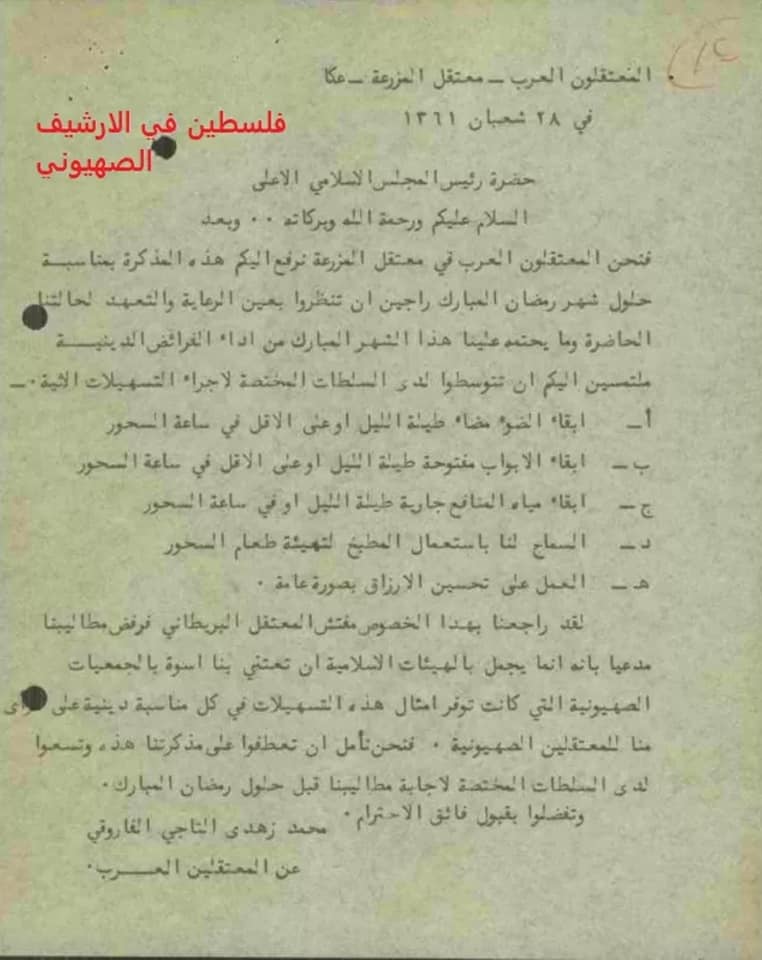 ١٤
المعتقلون العرب ــ معتقل المزرعة ــ عكا
في ٢٨ شعبان ١٣٦١
فلسطين في الارشيف
الصهيوني
حضرة رئيس المجلس الاسلامي الاعلى
السلام عليكم ورحمة الله وبركاته ٠٠ وبعد
فنحن المعتقلون العرب في معتقل المزرعة نرفع اليكم هذه المذكرة بمناسبة
حلول شهر رمضان المبارك راجين ان تنظروا بعين الرعاية والتعهد لحالتنا
الحاضرة وما يحتمه علينا هذا الشهر المبارك من اداء الفرائض الدينية
ملتمسين اليكم ان تتوسطوا لدى السلطات المختصة لاجراء التسهيلات الاتية ٠ــ
أ ــ ابقاء الضوء مضاء طيلة الليل او على الاقل في ساعة السحور
ب ــ ابقاء الابواب مفتوحة طيلة الليل او على الاقل في ساعة السحور
ج ــ ابقاء مياه المنافع جارية طيلة الليل او في ساعة السحور
د ــ السماح لنا باستعمال المطبخ لتهيئة طعام السحور
هـ ــ العمل على تحسين الارزاق بصورة عامة ٠
لقد راجعنا بهذا الخصوص مفتش المعتقل البريطاني فرفض مطاليبنا
مدعيا بانه انما يجمل بالهيئات الاسلامية ان تعتني بنا اسوة بالجمعيات
الصهيونية التي كانت توفر امثال هذه التسهيلات في كل مناسبة دينية على
منا للمعتقلين الصهيونية ٠ فنحن نأمل ان تعطفوا على مذكرتنا هذه وتسعوا
لدى السلطات المختصة لاجابة مطاليبنا قبل حلول رمضان المبارك ٠
وتفضلوا بقبول فائق الاحترام ٠
محمد زهدى التاجي الفاروقي
عن المعتقلين العرب ٠